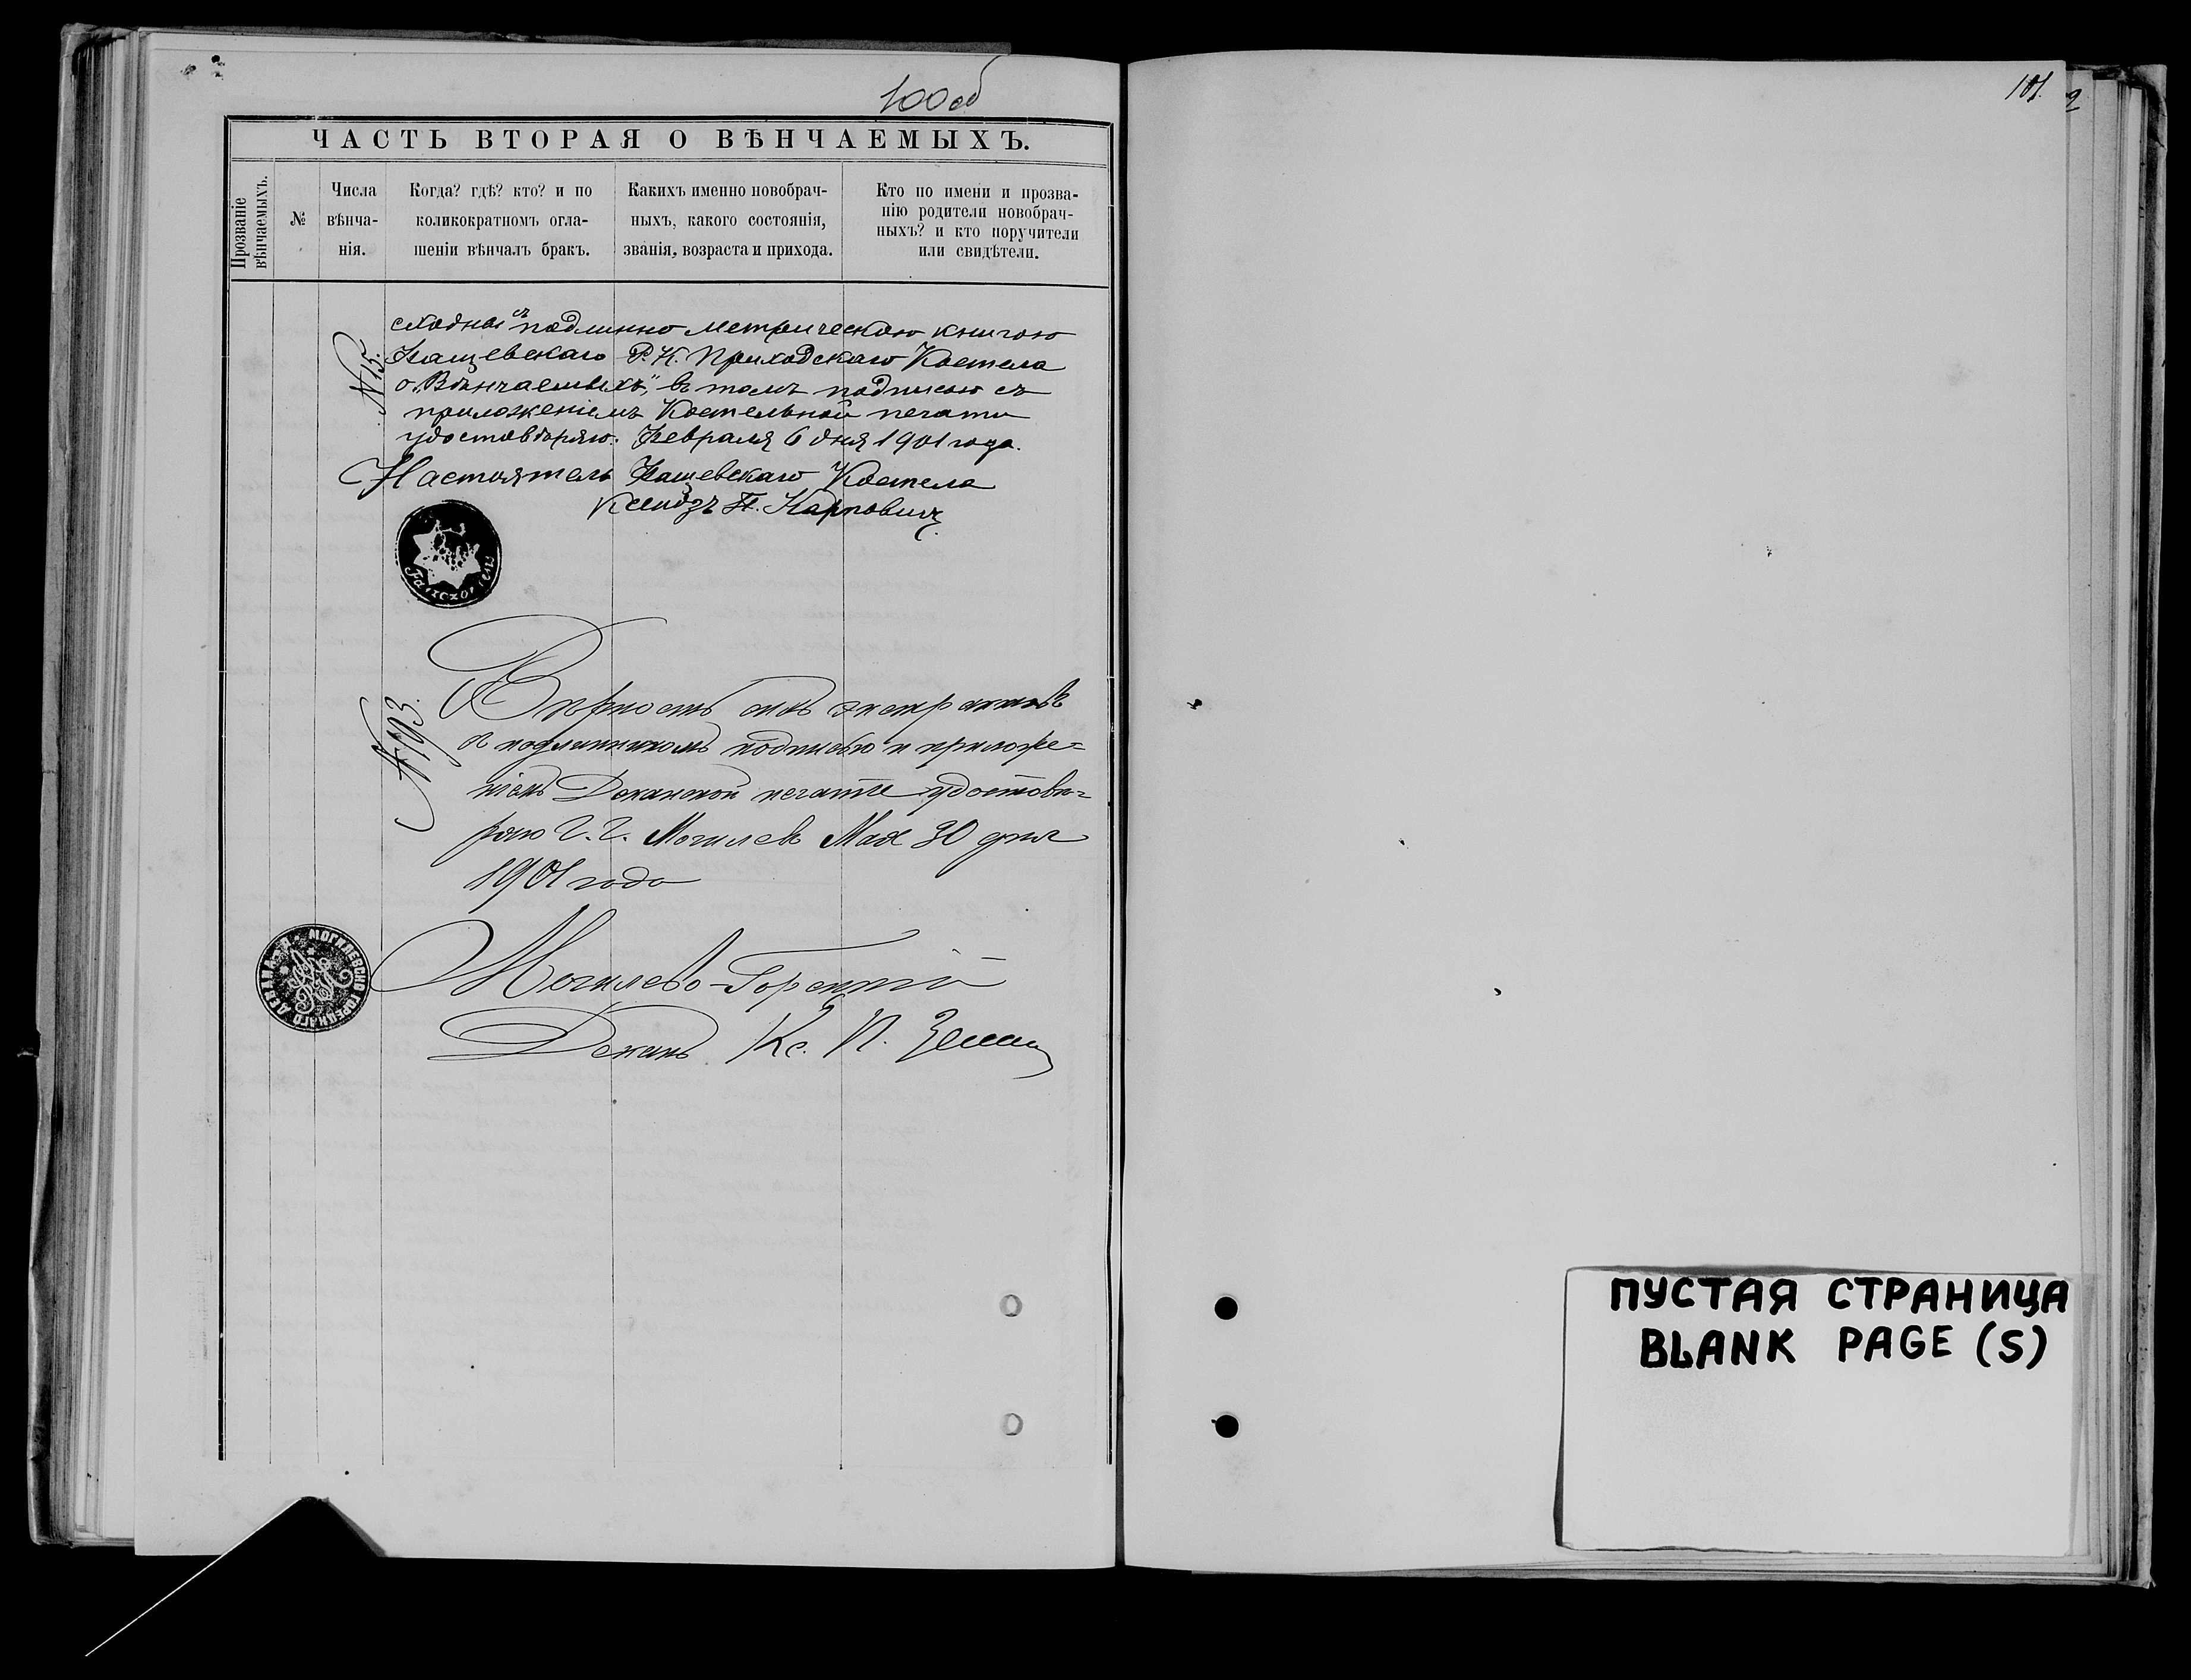 100 об
ЧАСТЬ ВТОРАЯ О ВѢНЧАЕМЫХЪ.
Прозваніе вѣнчаемыхъ.
№
Числа
вѣнча-
нія.
Когда? гдѣ? кто? и по
коликократномъ огла-
шеніи вѣнчалъ бракъ.
Какихъ именно новобрач-
ныхъ, какого состоянія,
званія, возраста и прихода.
Кто по имени и прозва-
нію родители новобрач-
ныхъ? и кто поручители
или свидѣтели.
№ 15.
съ подлинно метрическою книгою
Фащевскаго Р. К. Приходскаго Костела
о Вѣнчаемыхъ", въ томъ подписью съ
приложеніемъ Костельной печати
удостовѣряю. Февраля 6 дня 1901 года.
Настоятель Фащевскаго Костела
Ксендзъ П. Карповичъ
№ 193.
Вѣрность сихъ экстрактовъ
съ подлинникомъ подписью и приложе=
ніемъ Деканской печати удостовѣ=
ряю Г. Г. Могилевъ Мая 30 дня
1901 года
МОГИЛЕВСКО ГОРЕЦКАГО ДЕКАНА
Могилево-Горецкій
Деканъ Кс. П.
101.
ПУСТАЯ СТРАНИЦА
BLANK PAGE (S)